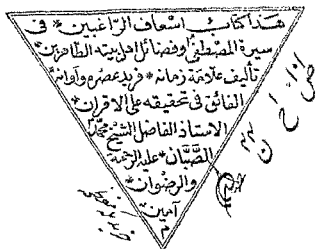 هذا كتاب اسعاف الراغبين * فى
سيرة المصطفى وفضائل اهل بيته الطاهرين *
تأليف علامة زمانه * فريد عصره وأوانه *
الفائق فى تحقيقه على الاقران *
الاستاذ الفاضل الشيخ محمد
الصبان * عليه الرحمة
والرضوان *
آمين
م